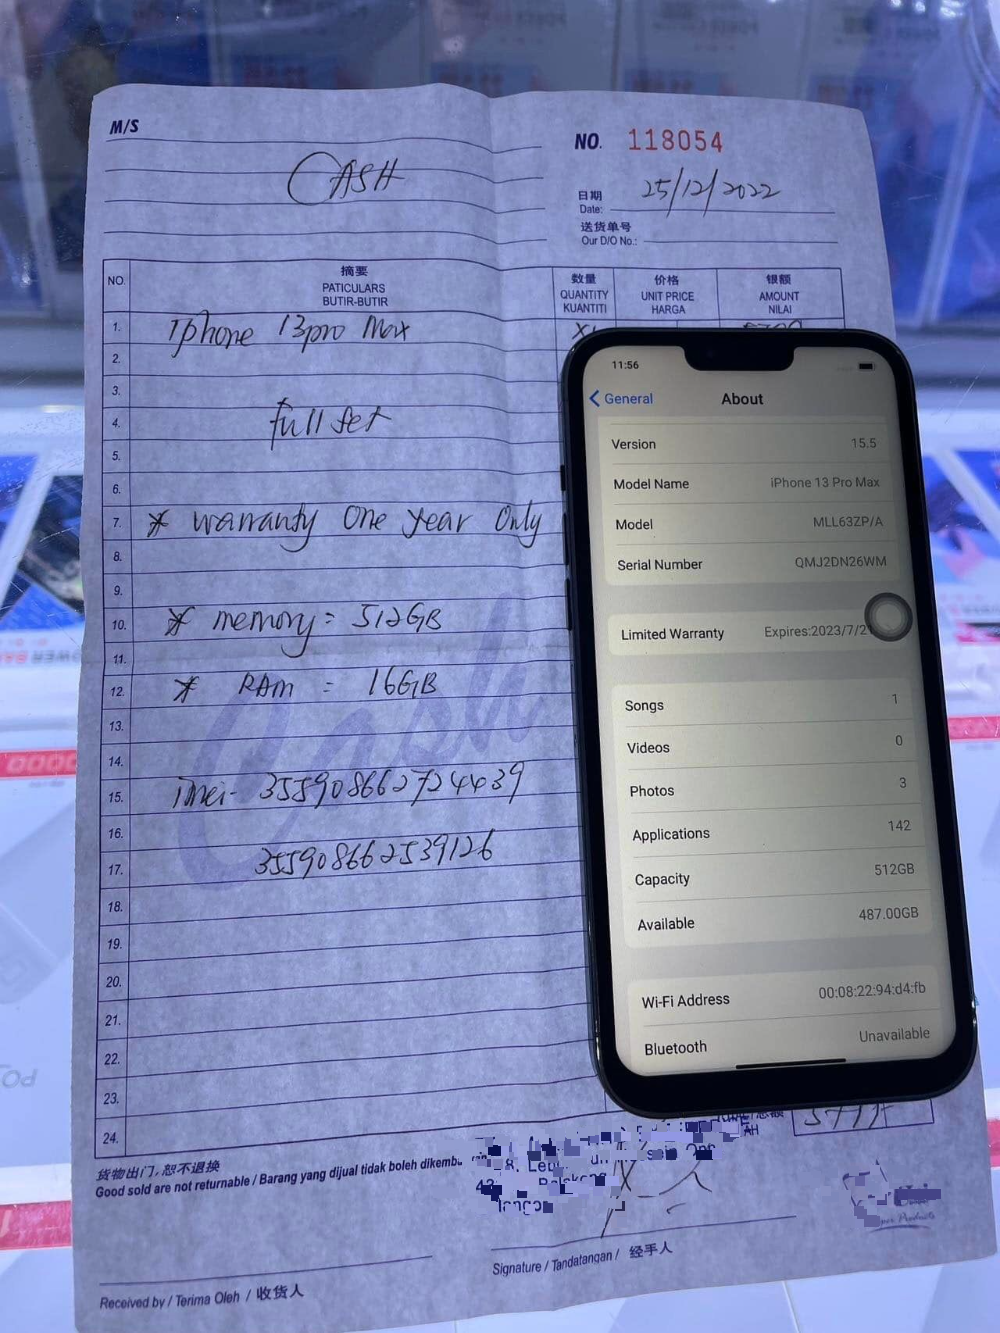 M/S
NO. 118054
CASH
日期
Date: 25/12/2022
送货单号
Our D/O No.:
NO.
摘要
PATICULARS
BUTIR-BUTIR
数量
QUANTITY
KUANTITI
价格
UNIT PRICE
HARGA
银额
AMOUNT
NILAI
1. Iphone 13pro Max
2.
3.
4. full set
5.
6.
7. * warranty One year Only
8.
9.
10. * memory = 512GB
11.
12. * RAM = 16GB
13.
14.
15. imei- 355908662724439
16.
17. 355908662539126
18.
19.
20.
21.
22.
23.
24.
Cash
货物出门,恕不退换
Good sold are not returnable / Barang yang dijual tidak boleh
Signature / Tandatangan / 经手人
Received by / Terima Oleh / 收货人
11:56
General
About
Version 15.5
Model Name iPhone 13 Pro Max
Model MLL63ZP/A
Serial Number QMJ2DN26WM
Limited Warranty Expires:2023/7/2
Songs 1
Videos 0
Photos 3
Applications 142
Capacity 512GB
Available 487.00GB
Wi-Fi Address 00:08:22:94:d4:fb
Bluetooth Unavailable